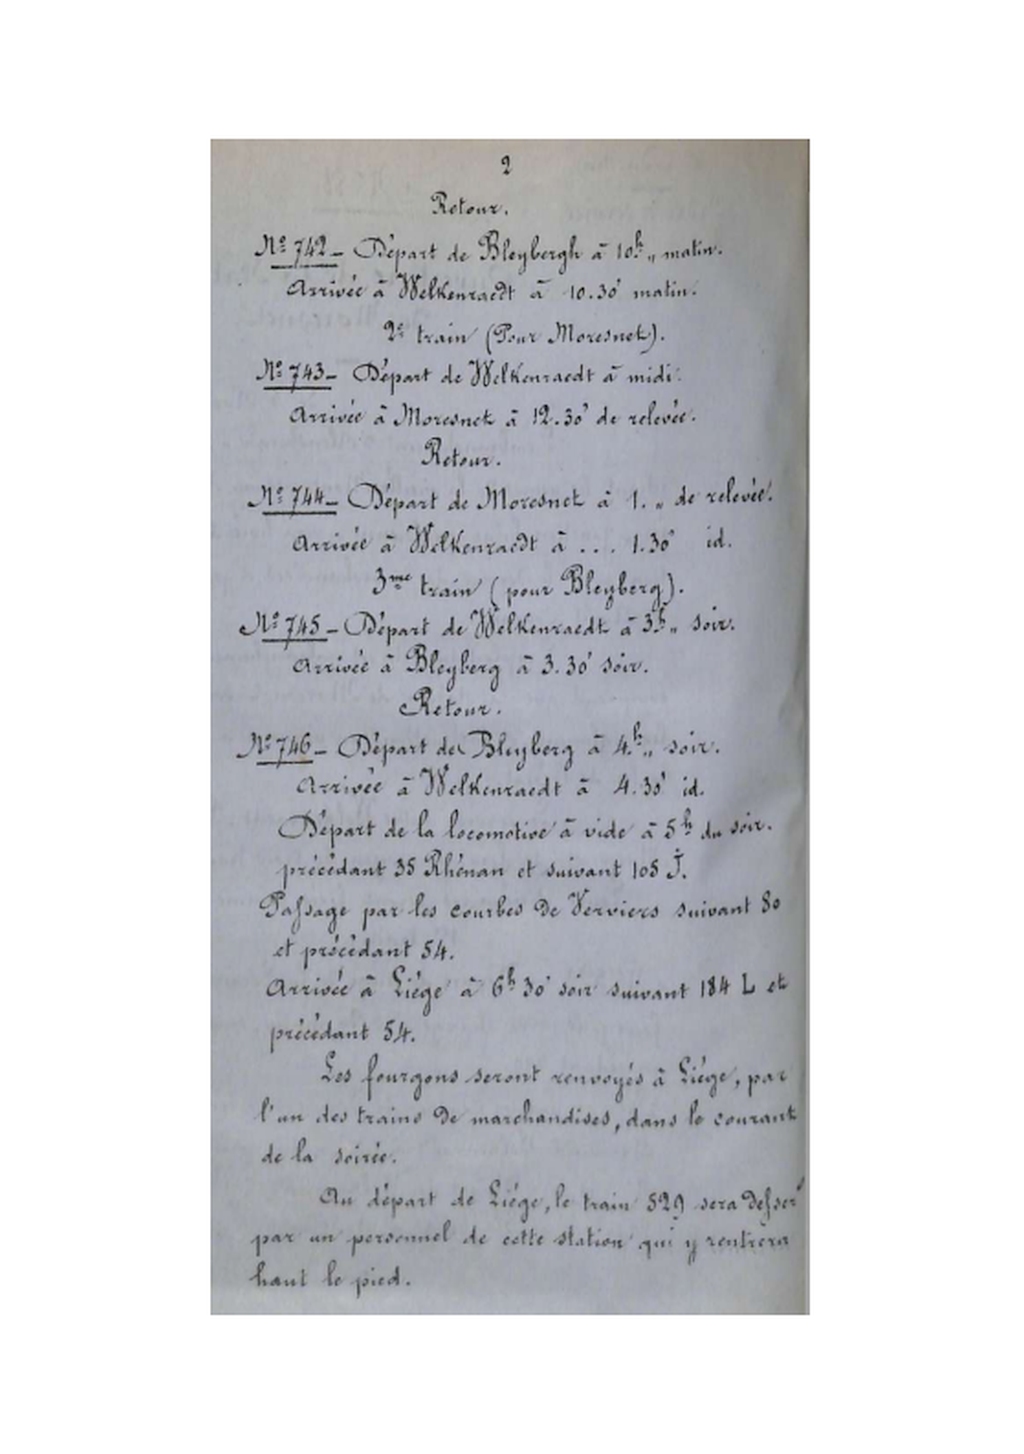 2
Retour.
Nº 742 _ Départ de Bleybergh à 10h „ matin.
Arrivée à Welkenraedt à 10.30' matin.
2e train (Pour Moresnet).
Nº 743 _ Départ de Welkenraedt à midi.
Arrivée à Moresnet à 12.30' de relevée.
Retour.
Nº 744 _ Départ de Moresnet à 1. „ de relevée.
Arrivée à Welkenraedt à ... 1.30' id.
3me train (pour Bleyberg).
Nº 745 _ Départ de Welkenraedt à 3h „ soir.
Arrivée à Bleyberg à 3.30' soir.
Retour.
Nº 746 _ Départ de Bleyberg à 4h „ soir.
Arrivée à Welkenraedt à 4.30' id.
Départ de la locomotive à vide à 5h du soir.
précédant 35 Rhénan et suivant 105 J.
Passage par les courbes de Verviers suivant 80
et précédant 54.
Arrivée à Liége à 6h 30' soir suivant 184 L et
précédant 54.
Les fourgons seront renvoyés à Liége, par
l'un des trains de marchandises, dans le courant
de la soirée.
Au départ de Liége, le train 529 sera desser
par un personnel de cette station qui y rentrera
haut le pied.